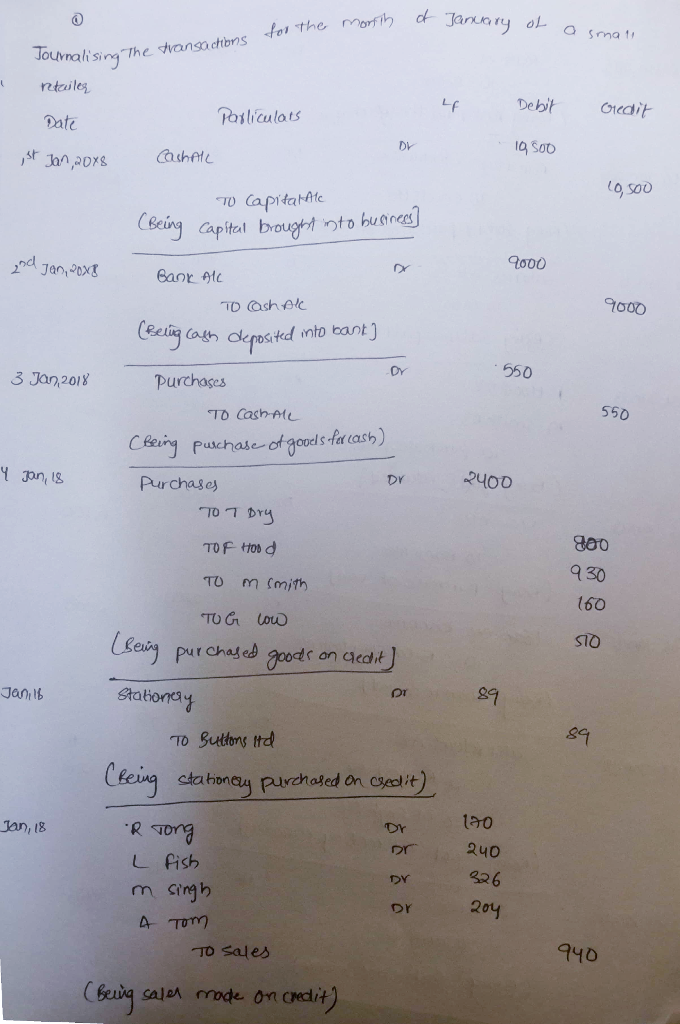 ①
Journalising The transactions for the month of January of a small
retailer
Date Particulars LF Debit Credit
1st Jan, 20X8 Cash A/c Dr 10,500
To Capital A/c 10,500
(Being capital brought into business)
2nd Jan, 20X8 Bank A/c Dr 9000
To Cash A/c 9000
(Being cash deposited into bank)
3 Jan, 2018 Purchases Dr 550
To Cash A/c 550
(Being purchase of goods for cash)
4 Jan, 18 Purchases Dr 2400
To T Dry
To F Hood 800
To M Smith 930
To G Low 160
(Being purchased goods on credit) 510
Jan, 18 Stationery Dr 89
To Buttons ltd 89
(Being stationery purchased on credit)
Jan, 18 R Tong Dr 170
L Fish Dr 240
M Singh Dr 326
A Tom Dr 204
To Sales 940
(Being sales made on credit)